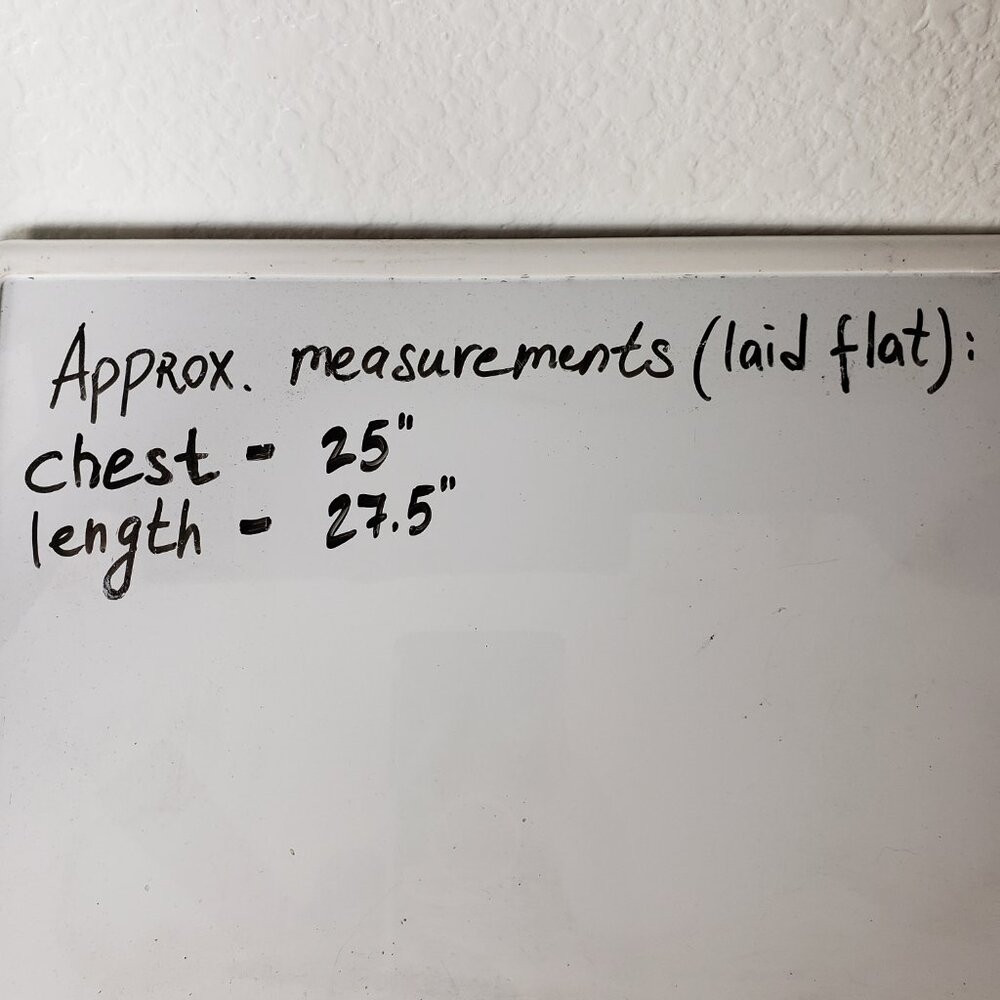 Approx. measurements (laid flat):
chest - 25"
length - 27.5"